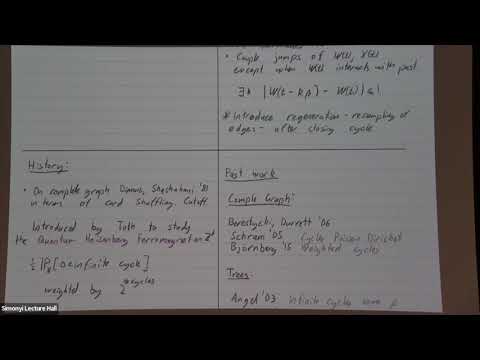 • Couple jumps of W(t), Y(t)
except when W(t) intersects with past
∃ k |W(t - kβ) - W(t)| ≤ 1
* Introduce regeneration - resampling of
edges - after closing cycle.
History:
• On complete graph Diaconis, Shashahani '81
in terms of card shuffling. Cutoff
Introduced by Toth to study
the Quantum Heisenberg Ferromagnet on Z^d
½ P_β[0 ∈ infinite cycle]
weighted by 2^{#cycles}
Past work
Comple Graph:
Berestycki, Durrett '06
Schramm '05 Cycles Poisson Dirichlet
Bjornberg '15 Weighted cycles
Trees:
Angel '03 Infinite cycles some β
Simonyi Lecture Hall